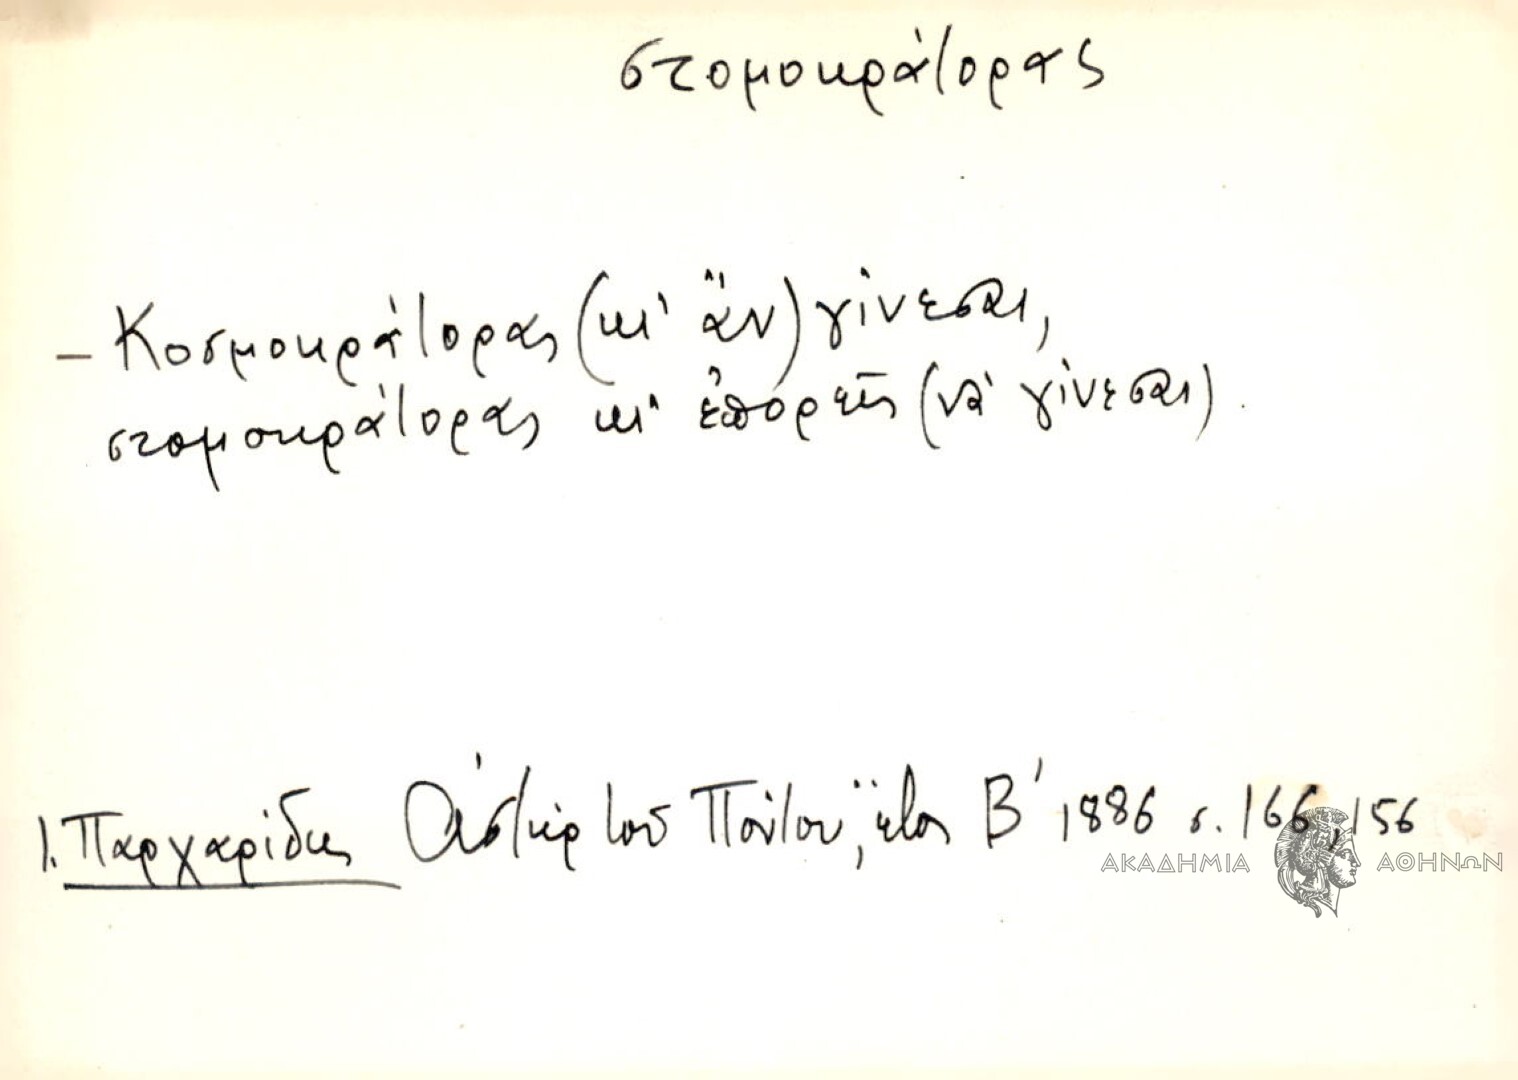 στομοκράτορας
– Κοσμοκράτορας (κι' ἂν) γίνεσαι,
στομοκράτορας κι' ἐπορεῖς (νὰ γίνεσαι).
Ι. Παρχαρίδης Ἀστὴρ τοῦ Πόντου", ἔτος Β' 1886 σ. 166, 156
ΑΚΑΔΗΜΙΑ ΑΘΗΝΩΝ